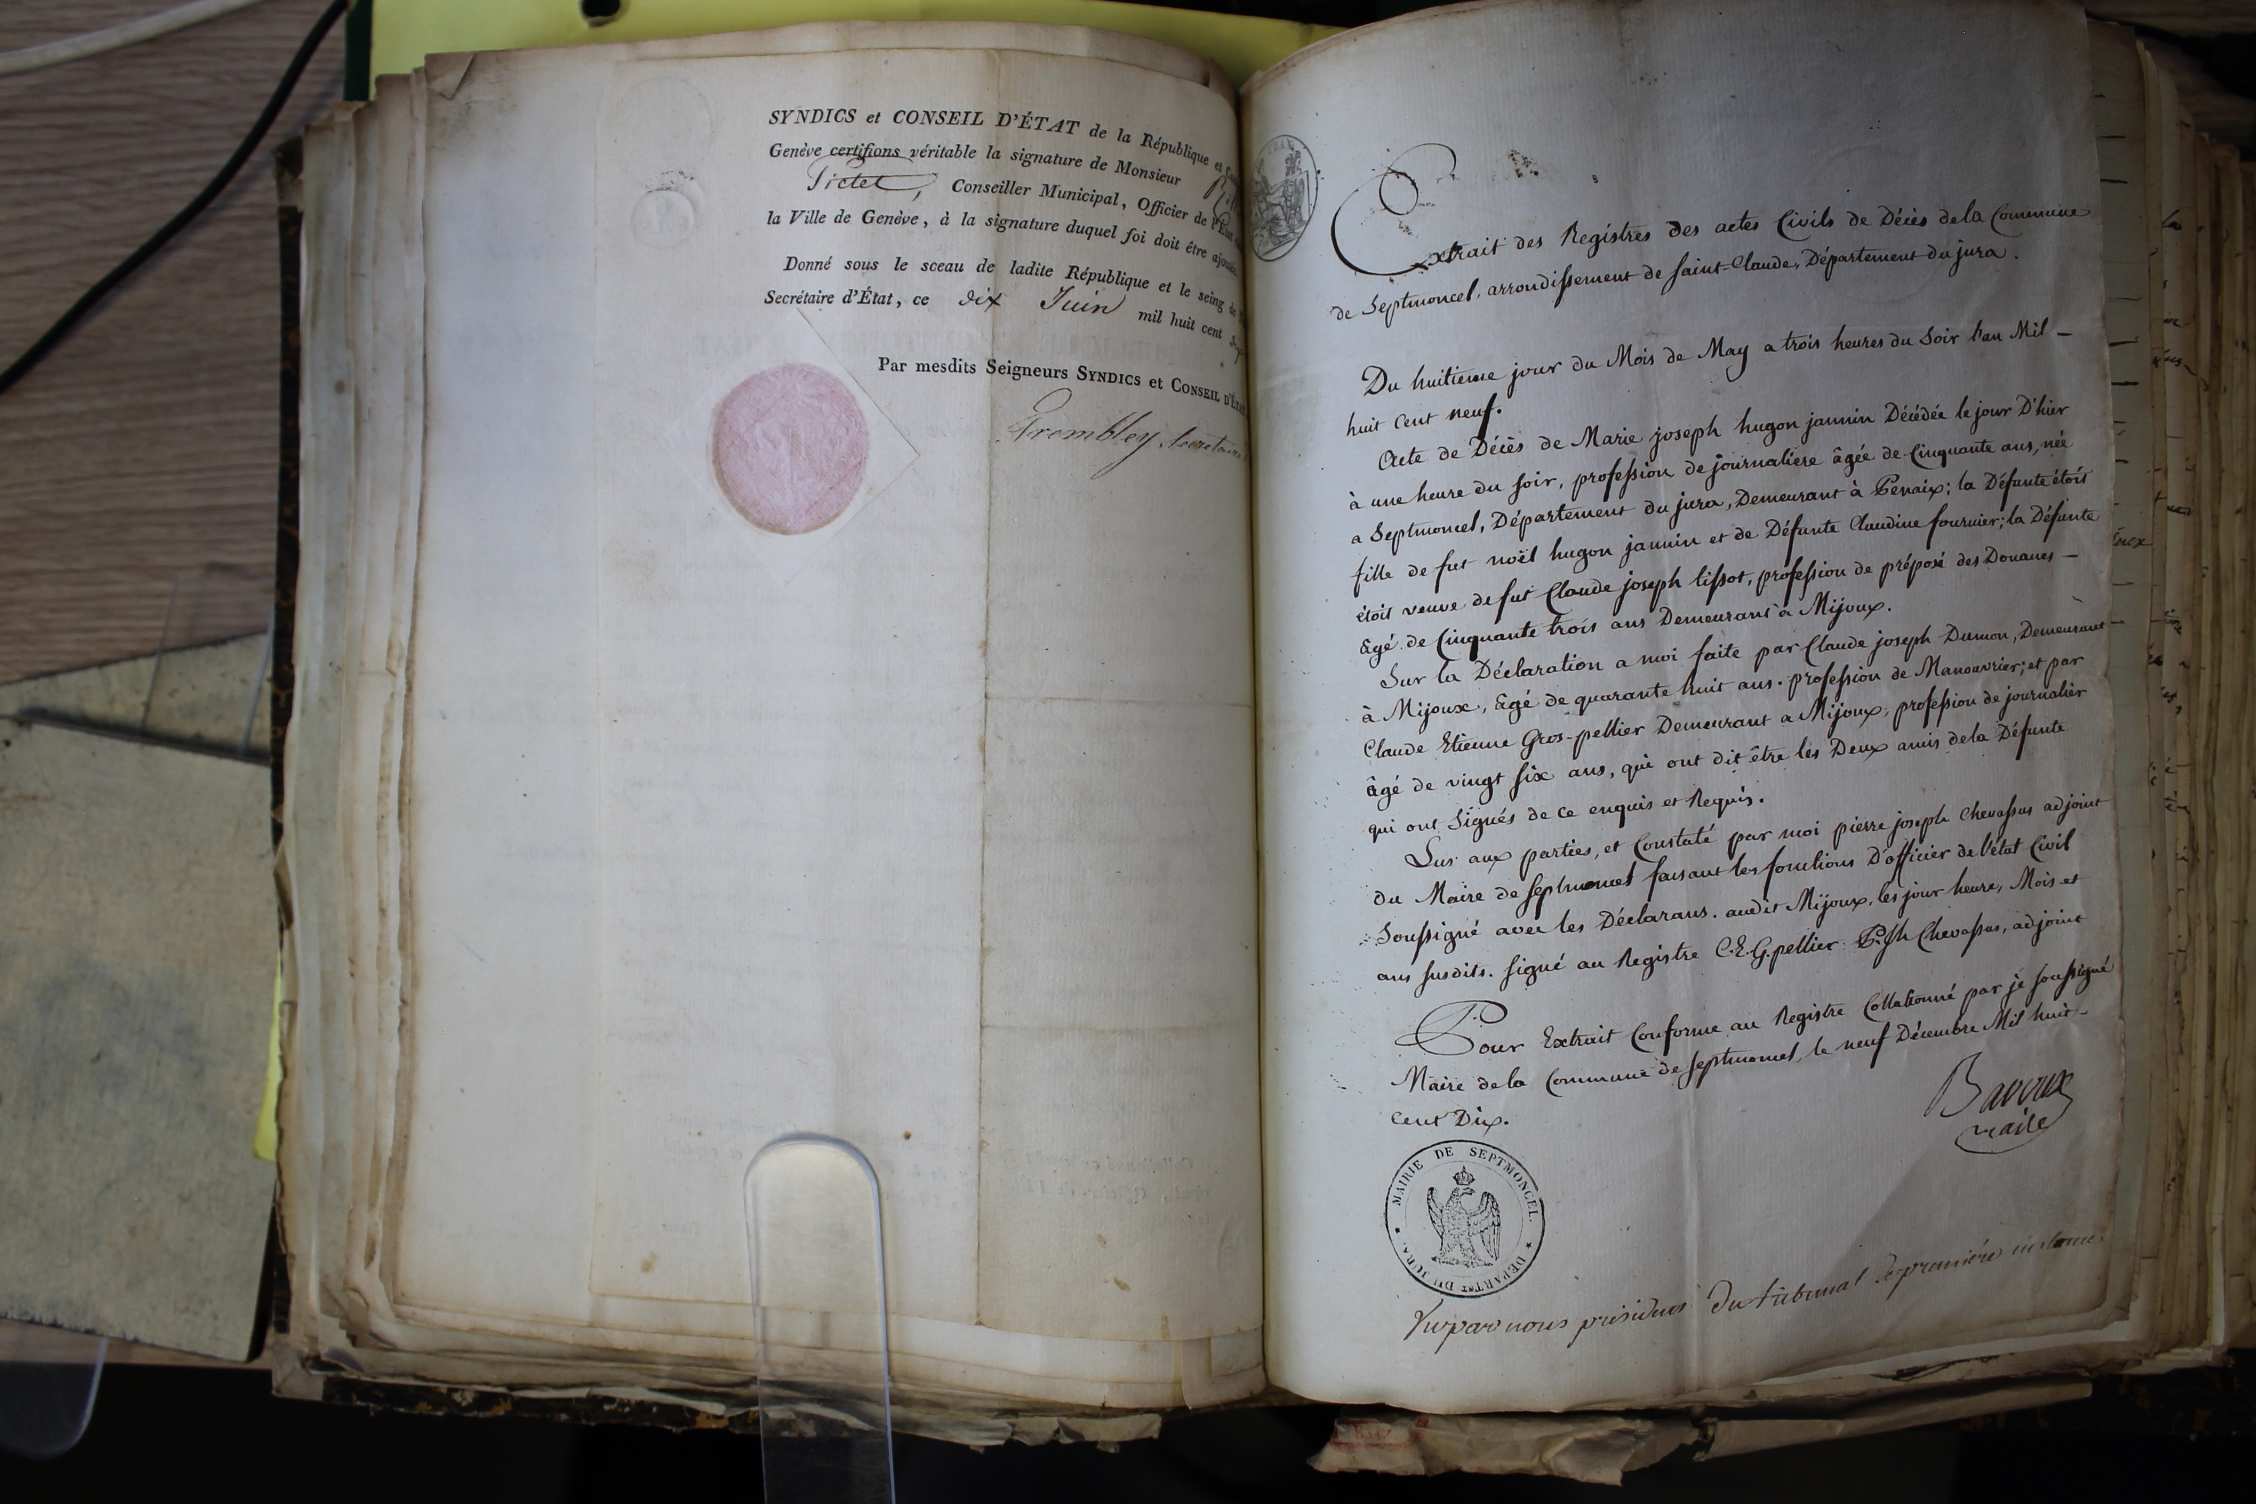 SYNDICS et CONSEIL D'ÉTAT de la République et
Genève certifions véritable la signature de Monsieur
Pictet, Conseiller Municipal, Officier de l'État
la Ville de Genève, à la signature duquel foi doit être
Donné sous le sceau de ladite République et le seing
Secrétaire d'État, ce dix Juin mil huit cent
Par mesdits Seigneurs SYNDICS et CONSEIL D'ÉTAT
Trembley, Secrétaire
Extrait des Registres des actes Civils de Décès de la Commune
de Septmoncel, arrondissement de Saint-Claude, Département du jura.
Du huitieme jour du Mois de May a trois heures du Soir l'an Mil —
huit Cent neuf.
Acte de Décès de Marie joseph hugon jannin Décédée le jour D'hier
à une heure du soir, profession de journaliere âgée de Cinquante ans, née
a Septmoncel, Département du jura, Demeurant à ; la Défunte étoit
fille de fut noël hugon jannin et de Défunte Claudine fournier; la Défunte
étoit veuve de fut Claude joseph lissot, profession de préposé des Douanes —
âgé de Cinquante trois ans Demeurant à Mijoux.
Sur la Déclaration a moi faite par Claude joseph Dumon, Demeurant
à Mijoux, âgé de quarante huit ans. profession de Manouvrier; et par
Claude Etienne Gros-pellier Demeurant a Mijoux, profession de journalier
âgé de vingt six ans, qui ont dit être les Deux amis de la Défunte
qui ont signés de ce enquis et Requis.
Lus aux parties, et Constaté par moi pierre joseph Chevassus adjoint
du Maire de Septmoncel faisant les fonctions D'officier de l'état Civil
Soussigné avec les Déclarans. audit Mijoux, les jour heure, Mois et
ans susdits. signé au Registre C.E.G.pellier. P.Jh Chevassus, adjoint
Pour Extrait Conforme au Registre Collationné par je soussigné
Maire de la Commune de Septmoncel, le neuf Décembre Mil huit-
Cent Dix.
Bavoux
maire
MAIRIE DE SEPTMONCEL. ★ DÉPARTt. DU JURA. ★
Vu par nous président du tribunal de première instance